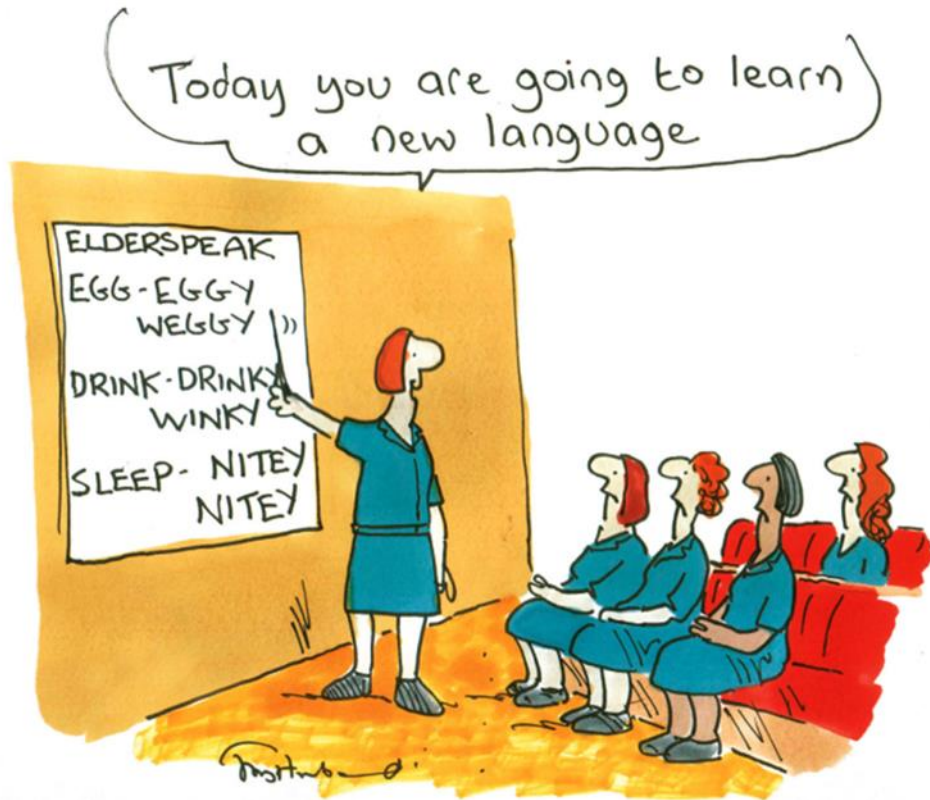 Today you are going to learn
a new language
ELDERSPEAK
EGG-EGGY
WEGGY
DRINK-DRINKY
WINKY
SLEEP- NITEY
NITEY